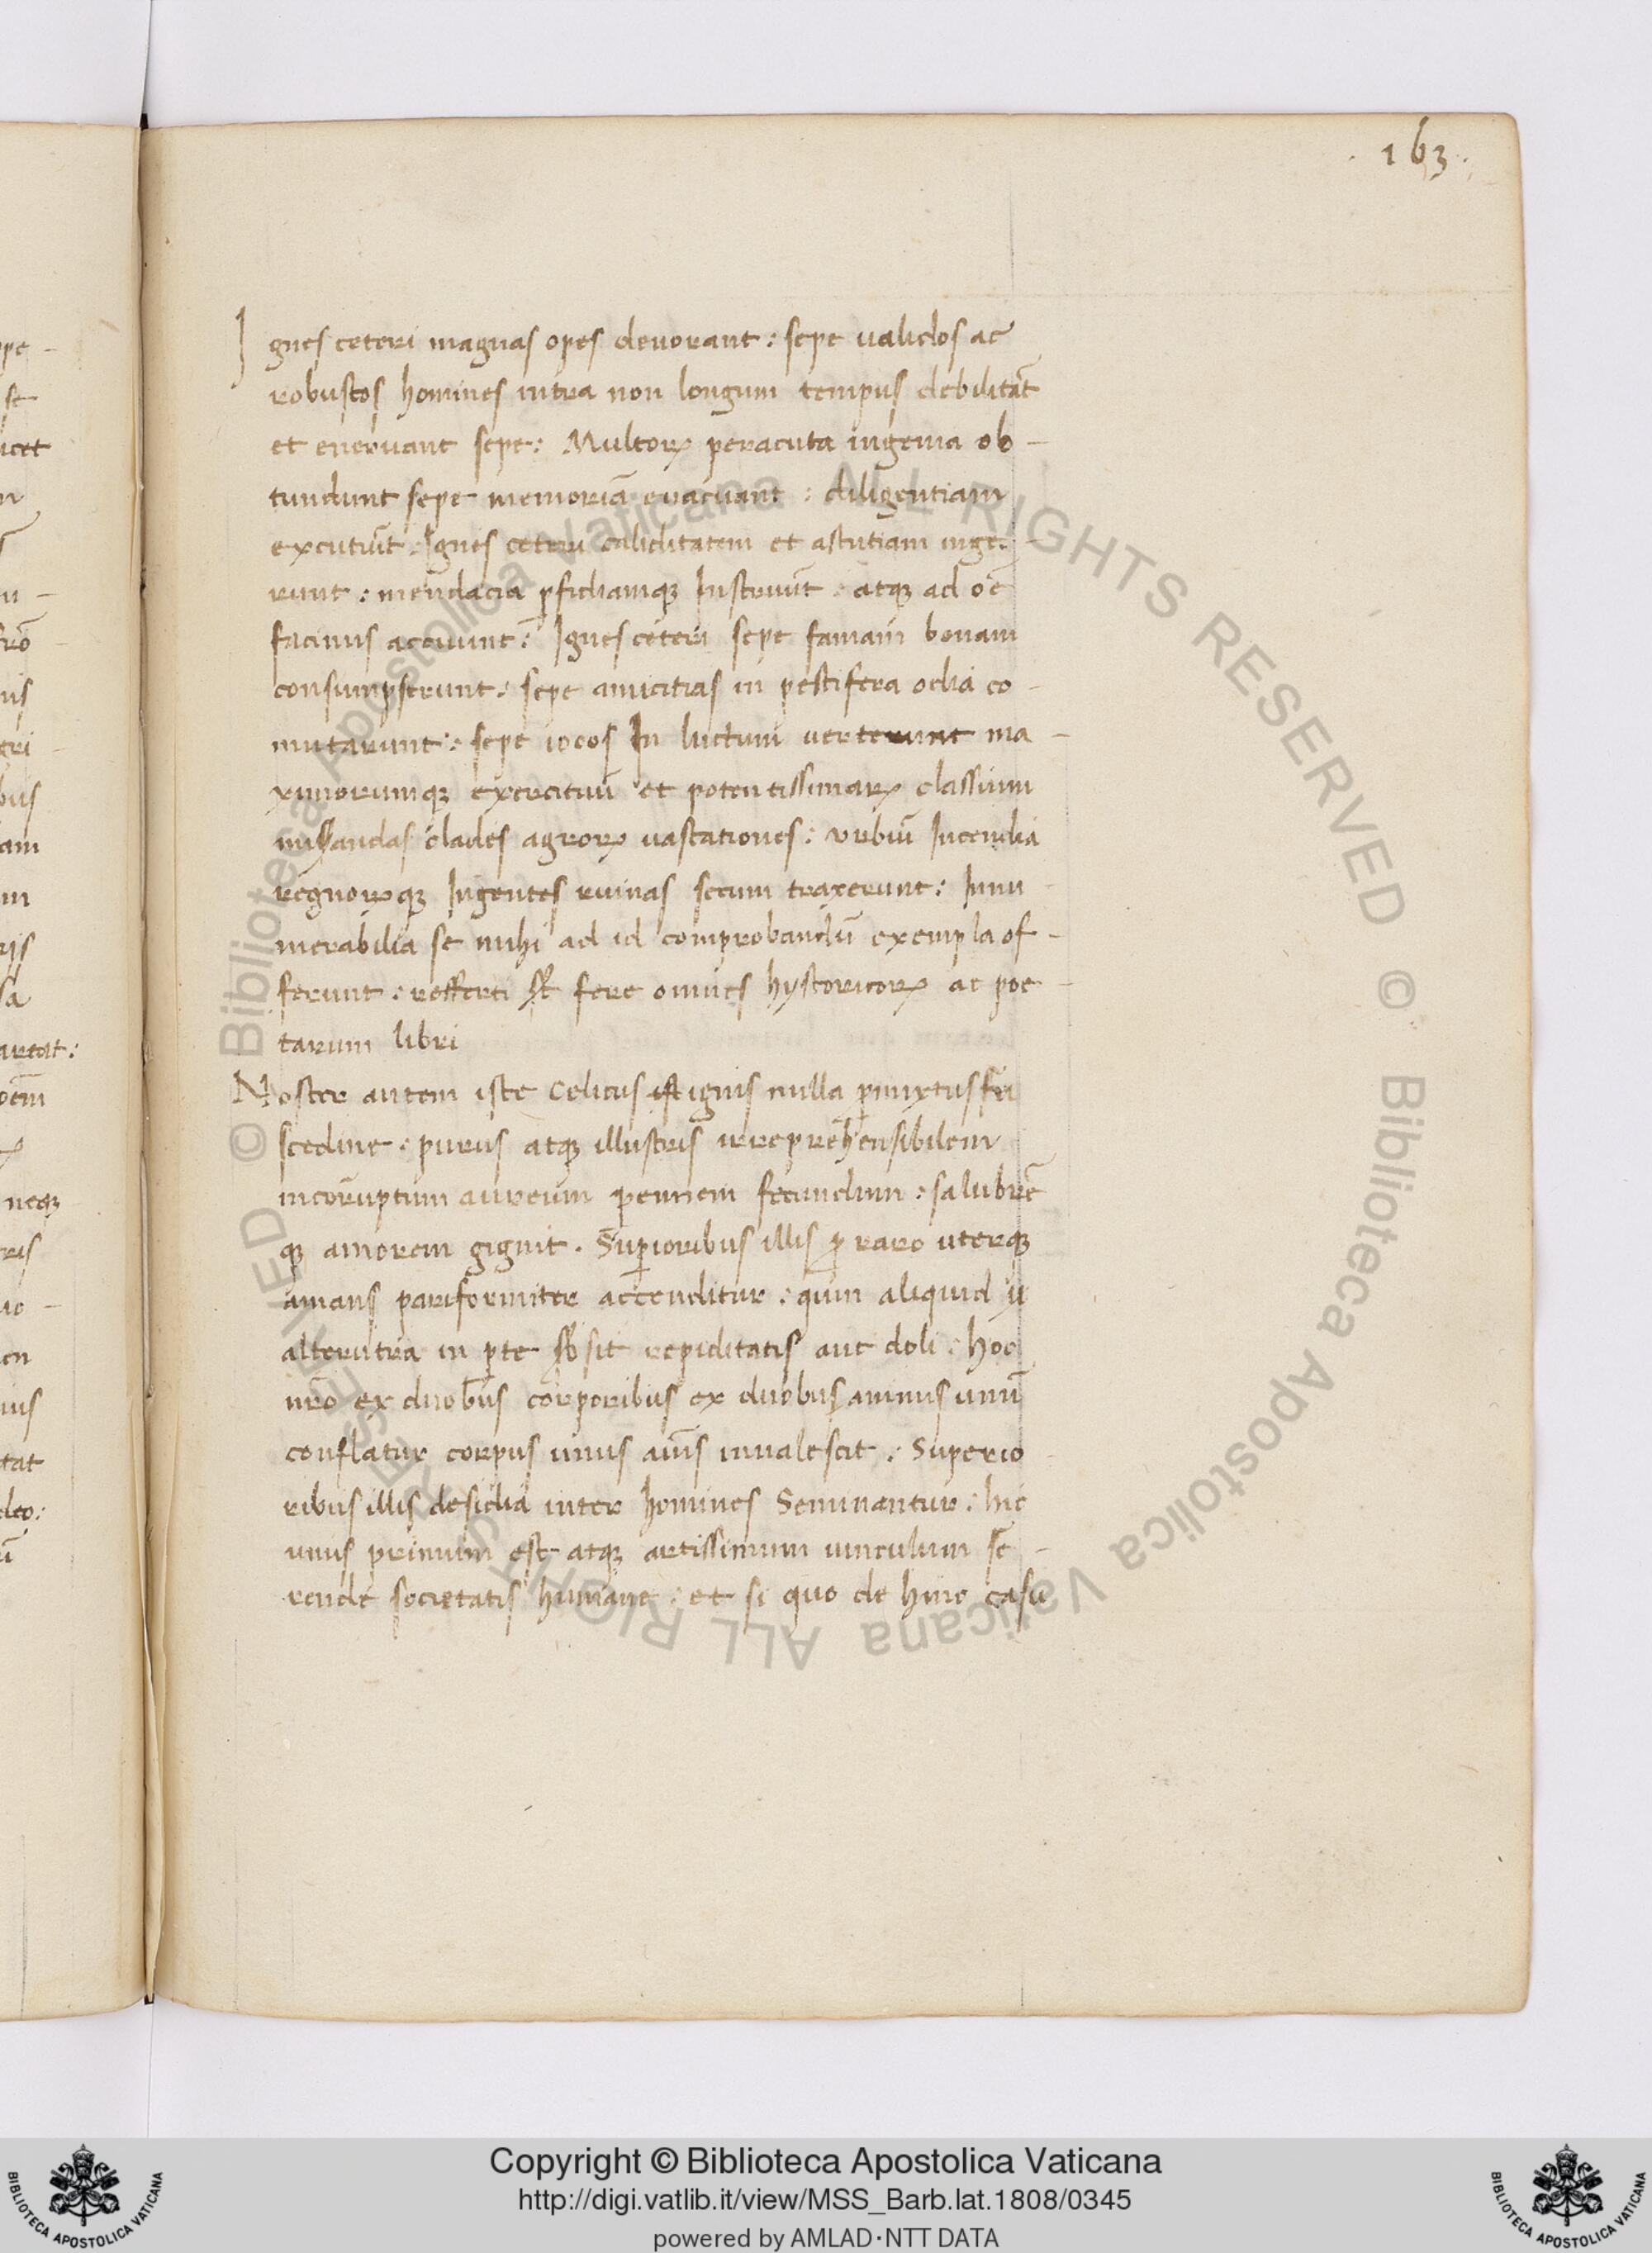 .163.
Ignes ceteri magnas opes devorant: sepe validos ac
robustos homines intra non longum tempus debilitãt
et enervant sepe: Multoꝝ peracuta ingenia ob-
tundunt sepe memoriã evacuant: diligentiam
excutiũt. Ignes ceteri caliditatem et astutiam inge-
runt: mendacia ꝑfidiamqꝫ Instruũt: atqꝫ ad oẽ
facinus acciunt: Ignes ceteri sepe famam bonam
consumpserunt: sepe amicitias in pestifera odia co-
mutarunt: sepe iocos In luctum verterunt ma-
ximorumqꝫ exercituũ et potentissimaꝝ classium
miserandas clades agroꝝ vastationes: urbiũ Incendia
regnoꝝqꝫ Ingentes ruinas secum traxerunt: Innu-
merabilia se mihi ad id comprobandũ exempla of-
ferunt: refferti st fere omnes hystoricoꝝ ac poe-
tarum libri
Noster autem iste Celicus ignis nulla ꝑmixtus fu
scedine: purus atqꝫ illustris irreprehensibilem
incorruptum aureum pennem fecundum: salubrẽ
qꝫ amorem gignit. Suꝑioribus illis ꝑ raro uterqꝫ
amans pariformiter accenditur: quin aliquid ĩ
alterutra in ꝑte sbsit tepiditatis aut doli: Hoc
nr̃o ex duobus corporibus ex duobus animis unũ
conflatur corpus unus aĩus invalescit: Superio
ribus illis desidia inter homines Seminantur: hic
unus primum est atqꝫ artissimum vinculum se-
rende societatis humane: et si quo de hinc casu
© Biblioteca Apostolica Vaticana ALL RIGHTS RESERVED © Biblioteca Apostolica Vaticana ALL RIGHTS RESERVED
Copyright © Biblioteca Apostolica Vaticana
http://digi.vatlib.it/view/MSS_Barb.lat.1808/0345
powered by AMLAD·NTT DATA
BIBLIOTECA APOSTOLICA VATICANA
BIBLIOTECA APOSTOLICA VATICANA